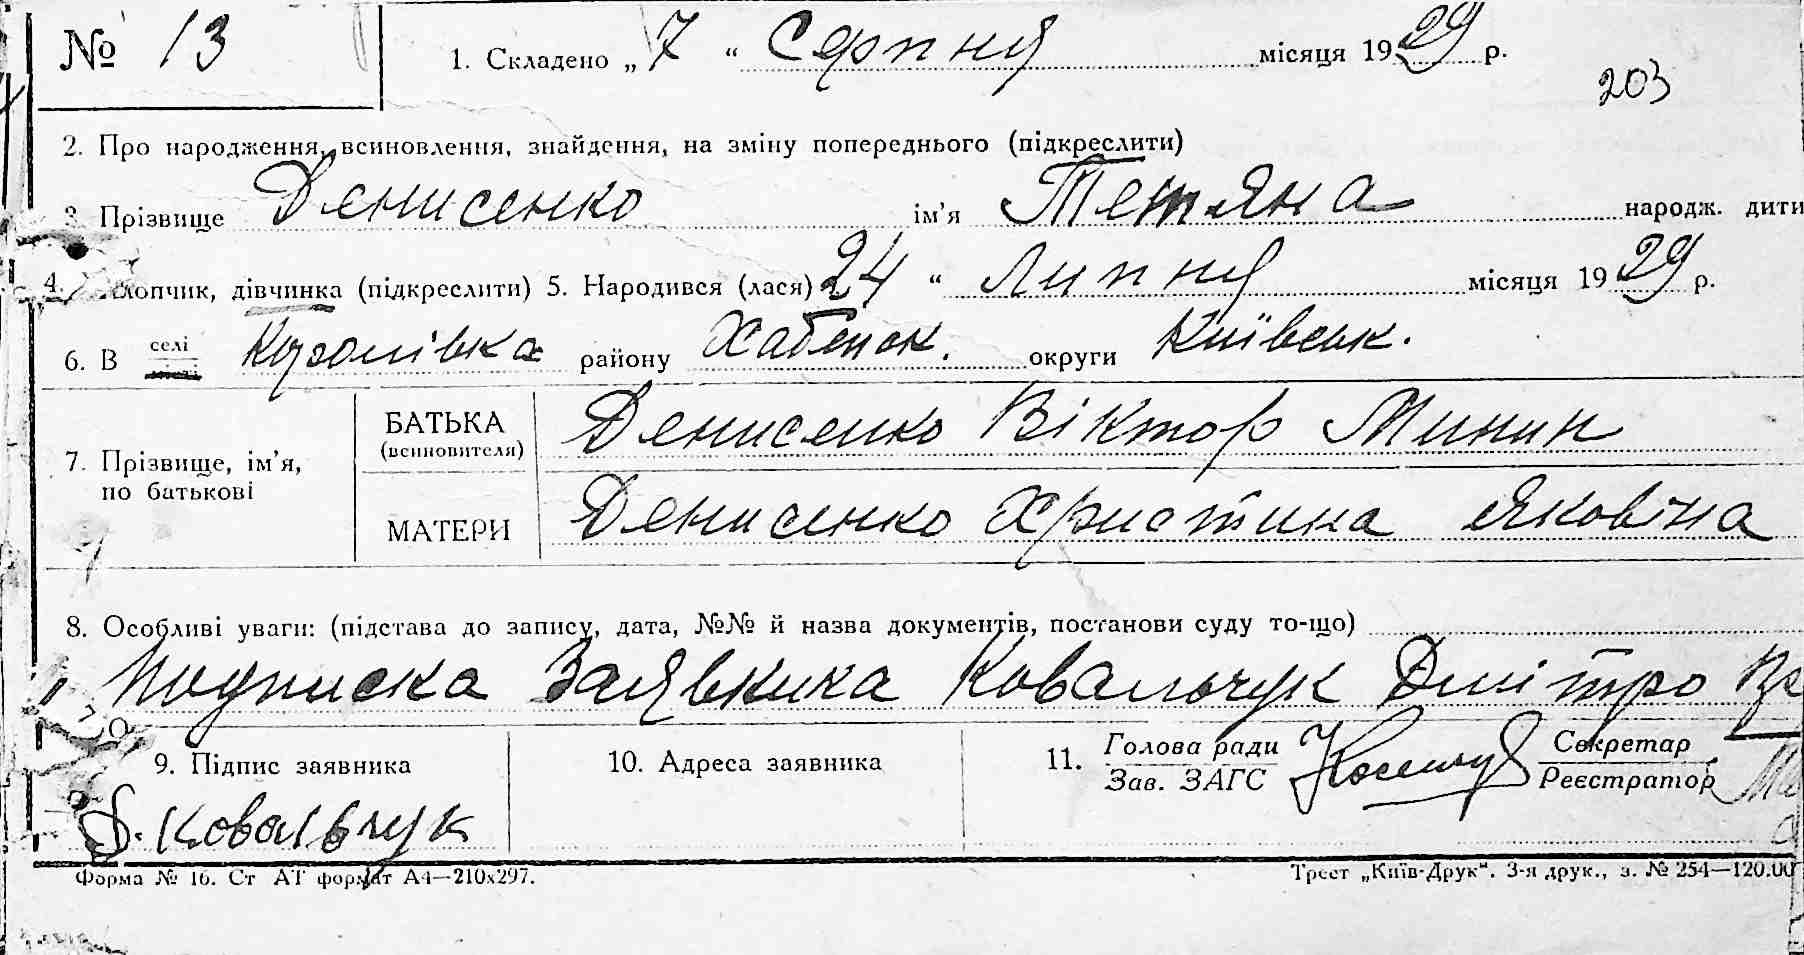 № 13
1. Складено „ 7 “ Серпня місяця 1929 р.
203
2. Про народження, всиновлення, знайдення, на зміну попереднього (підкреслити)
3. Прізвище Денисенко ім’я Тетяна народж. дити
4. хлопчик, дівчинка (підкреслити) 5. Народився (лася) 24 “ Липня місяця 1929 р.
6. В селі району Хабенск. округи Київськ.
7. Прізвище, ім’я, по батькові
БАТЬКА (всиновителя) Денисенко Віктор Минин
МАТЕРИ Денисенко Христина Яковіна
8. Особливі уваги: (підстава до запису, дата, №№ й назва документів, постанови суду то-що)
подписка Заявника Ковальчук Дмітро
9. Підпис заявника
10. Адреса заявника
11. Голова ради Секретар
Зав. ЗАГС Реєстратор
Д. Ковальчук
Форма № 16. Ст АТ формат А4—210х297.
Трест „Київ-Друк“. 3-я друк., з. № 254—120.00